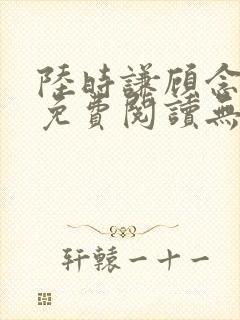 陸時謙顾念
免費閱讀無
轩轅一十一